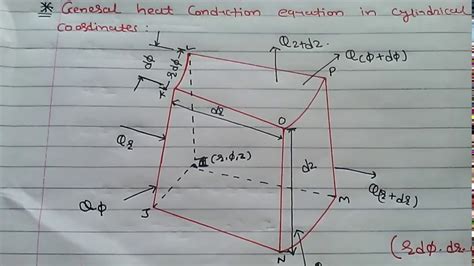 * General heat Conduction equation in cylindrical
coordinates:
Q2+d2.
Q(φ+dφ)
L
P
dφ
rdφ
K
dr
O
Qr
(r,φ,z)
dz
Q(r+dr)
Qφ
J
M
N
(rdφ.dr.